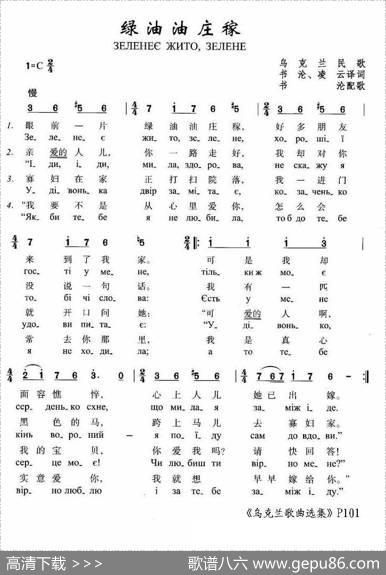 绿油油庄稼
ЗЕЛЕНЕЄ ЖИТО, ЗЕЛЕНЕ
1=C 2/4
乌克兰民歌
书沦、凌云译词
书沦配歌
慢
3 6 #5 6 7 i 7 6 #5 6
1. 眼前一片 绿油油庄稼, 好多朋友
Зе_ ле_ не_ є жи_ то, зе_ ле_ не, хо_ ро_ ші_ ї
2. 亲爱的人儿, 你一路走好, 我却对你
"І_ ди, і_ ди, ми_ ла, здо_ ро_ ва, не ска_ жу я
3. 寡妇在家 正打扫院落, 我一进门
У_ ді_ вонь_ ка двір за_ мі_ та_ є, ко_ за_ чень_ ко
4. "我要不是 从心里爱你, 怎么会
"Як_ би те_ бе я не лю_ би_ ла, то б до те_ бе
7 i 7 6 #5 i i i 3
来到了我家。 可是我却
гос_ ті у ме_ не, тіль_ ки ж мо_ є
没说一句话。 我有一匹
то_ бі чі сло_ ва: Єсть у ме_ не
就开口问她: "可爱的人啊,
удо_ ви пи_ та_ є: "У_ ді_ вонь_ ко,
常去你那里, 我是真心
я не хо_ ди_ ла; а то те_ бе
面容憔悴, 心上人儿 她已出嫁。
сер_ день_ ко схне, що ми_ ла я за_ між і_ де.
黑色的马, 跨上马儿 去寡妇家。
кінь во_ ро_ ний — я по_ ї_ ду сам до вдо_ ви."
我的宝贝, 你爱我吗? 请快回答!
сер_ це мо_ є! Чи лю_ биш ти вір_ но ме_ не?"
实意爱你, 我就想 早早嫁给你。"
вір_ но люб_ лю і за те_ бе за_ між пі_ ду."
《乌克兰歌曲选集》P101
高清下载 >>> 歌谱八六 www.gepu86.com